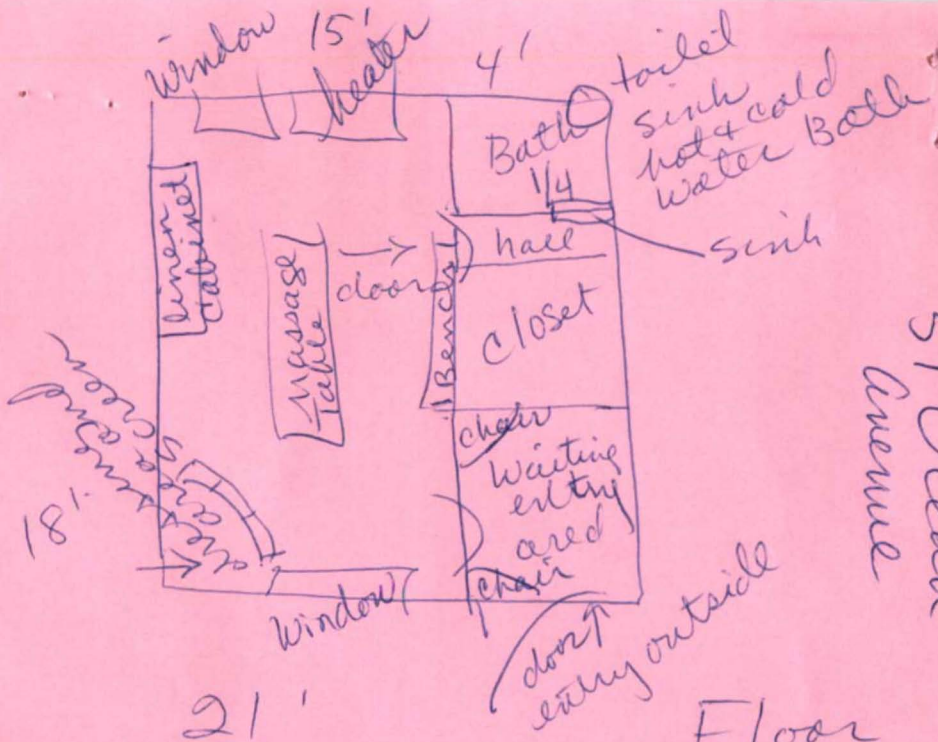 Window
15'
heater
4'
toilet
sink
hot & cold
water Bath
Bath
1/4
sink
hall
linen
cabinet
Massage
Table
door
Bench
Closet
chair
Waiting
entry
area
chair
screen
18'
Window
door
entry outside
21'
Avenue
Floor